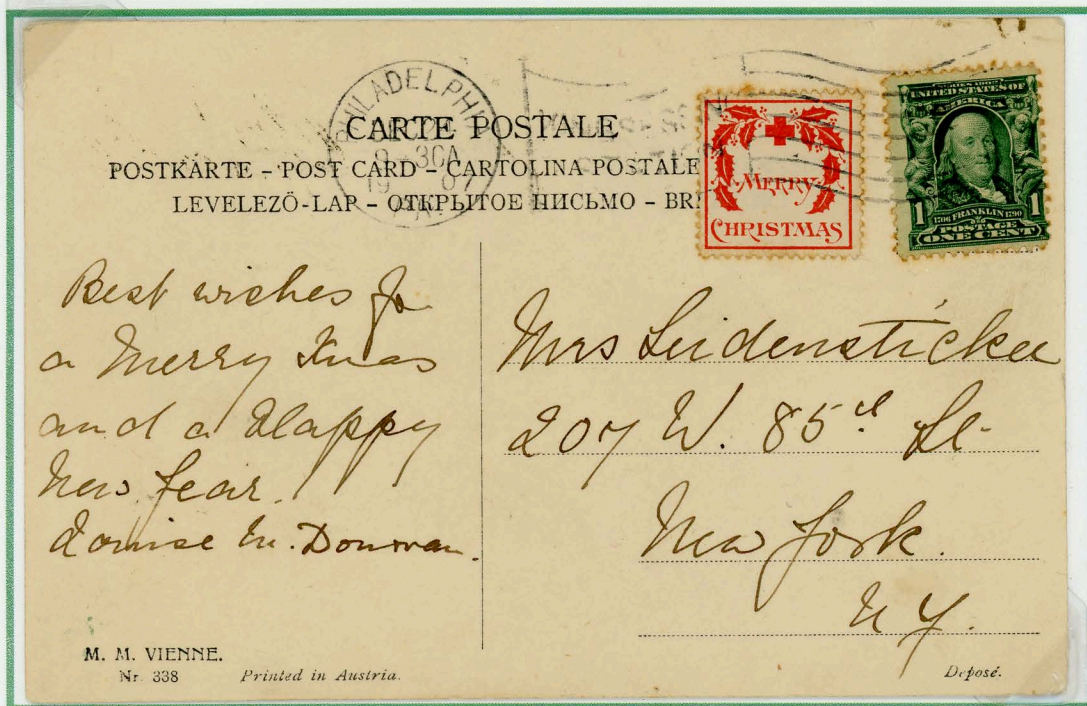 PHILADELPHI
9-30A
19 07
PA.
CARTE POSTALE
POSTKÄRTE - POST CARD - CARTOLINA POSTALE
LEVELEZÖ-LAP - ОТКРЫТОЕ ПИСЬМО - BR
MERRY
CHRISTMAS
SERIES 1902
UNITED STATES OF
AMERICA
1 1706 FRANKLIN 1790 1
POSTAGE
ONE CENT
Best wishes for
a Merry Xmas
and a Happy
New Year.
Louise M. Donovan.
Mrs Leidensticker
207 W. 85th St.
New York.
N Y.
M. M. VIENNE.
Nr. 338 Printed in Austria.
Déposé.